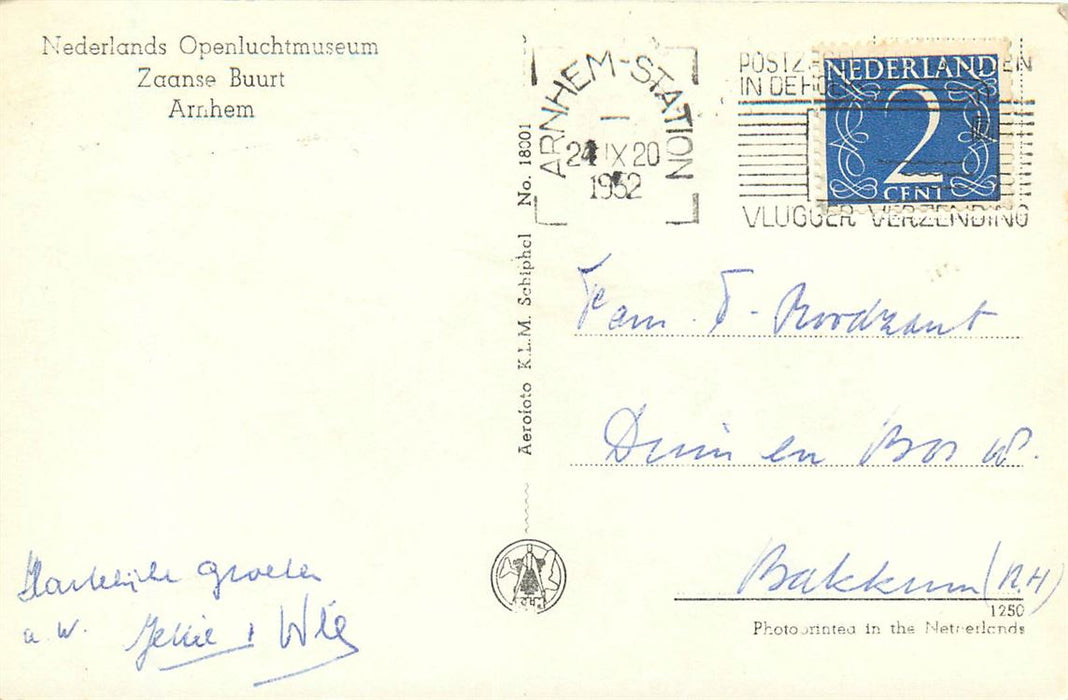 Nederlands Openluchtmuseum
Zaanse Buurt
Arnhem
ARNHEM-STATION
1
24 IX 20
1952
IN DE
VLUGGER VERZENDING
NEDERLAND
2
CENT
Aerofoto K.L.M. Schiphol No. 18001
Fam. T. Noordzant
Duin en Bos W.
Bakkum (N.H)
1250
Photoprinted in the Netherlands
Hartelijke groeten
a. W.